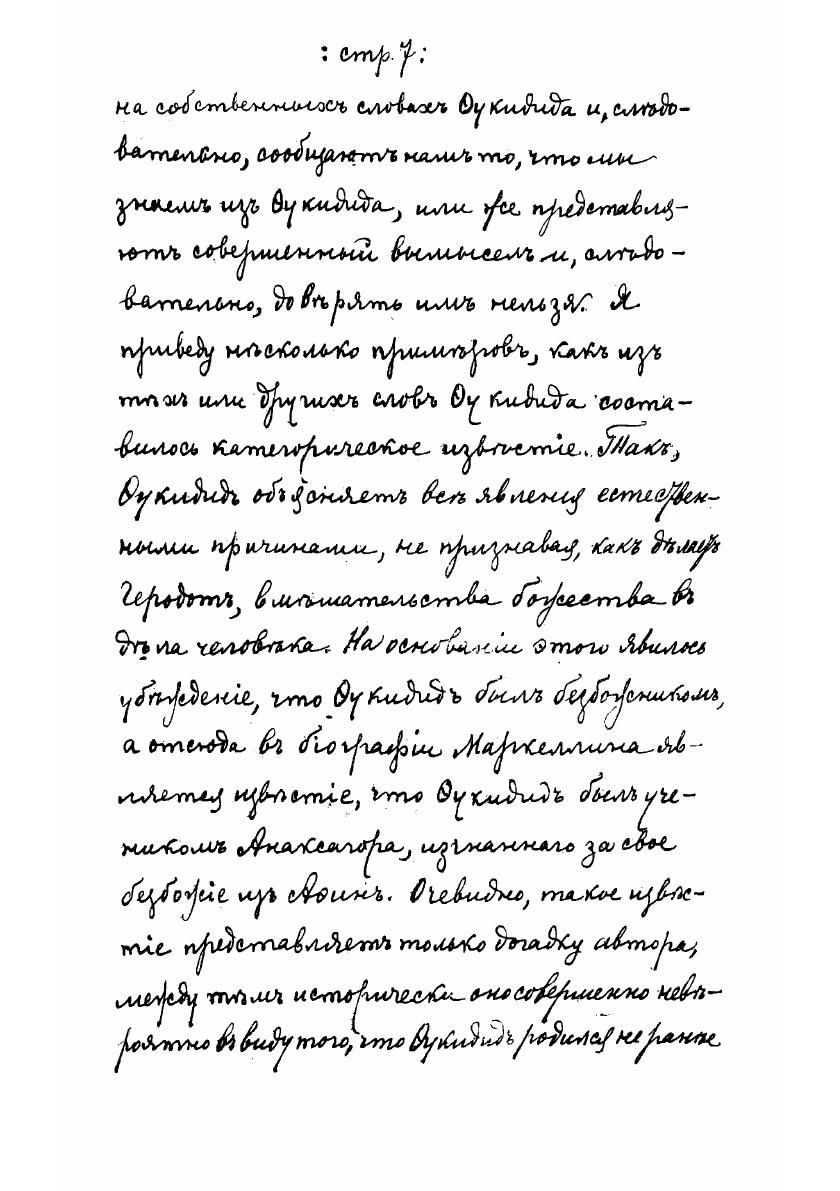 : стр. 7:
на собственныхъ словахъ Ѳукидида и, слѣдо-
вательно, сообщаютъ намъ то, что мы
знаемъ изъ Ѳукидида, или же представля-
ютъ совершенный вымыселъ и, слѣдо-
вательно, довѣрять имъ нельзя. Я
приведу нѣсколько примѣровъ, какъ изъ
тѣхъ или другихъ словъ Ѳукидида соста-
вилось категорическое извѣстіе. Такъ,
Ѳукидидъ объясняетъ всѣ явленія естествен-
ными причинами, не признавая, какъ дѣлаетъ
Геродотъ, вмѣшательства божества въ
дѣла человѣка. На основаніи этого явилось
убѣжденіе, что Ѳукидидъ былъ безбожникомъ,
а отсюда въ біографіи Маркеллина яв-
ляется извѣстіе, что Ѳукидидъ былъ уче-
никомъ Анаксагора, изгнаннаго за свое
безбожіе изъ Аѳинъ. Очевидно, такое извѣс-
тіе представляетъ только догадку автора,
между тѣмъ исторически оно совершенно невѣ-
роятно въ виду того, что Ѳукидидъ родился не ранѣе